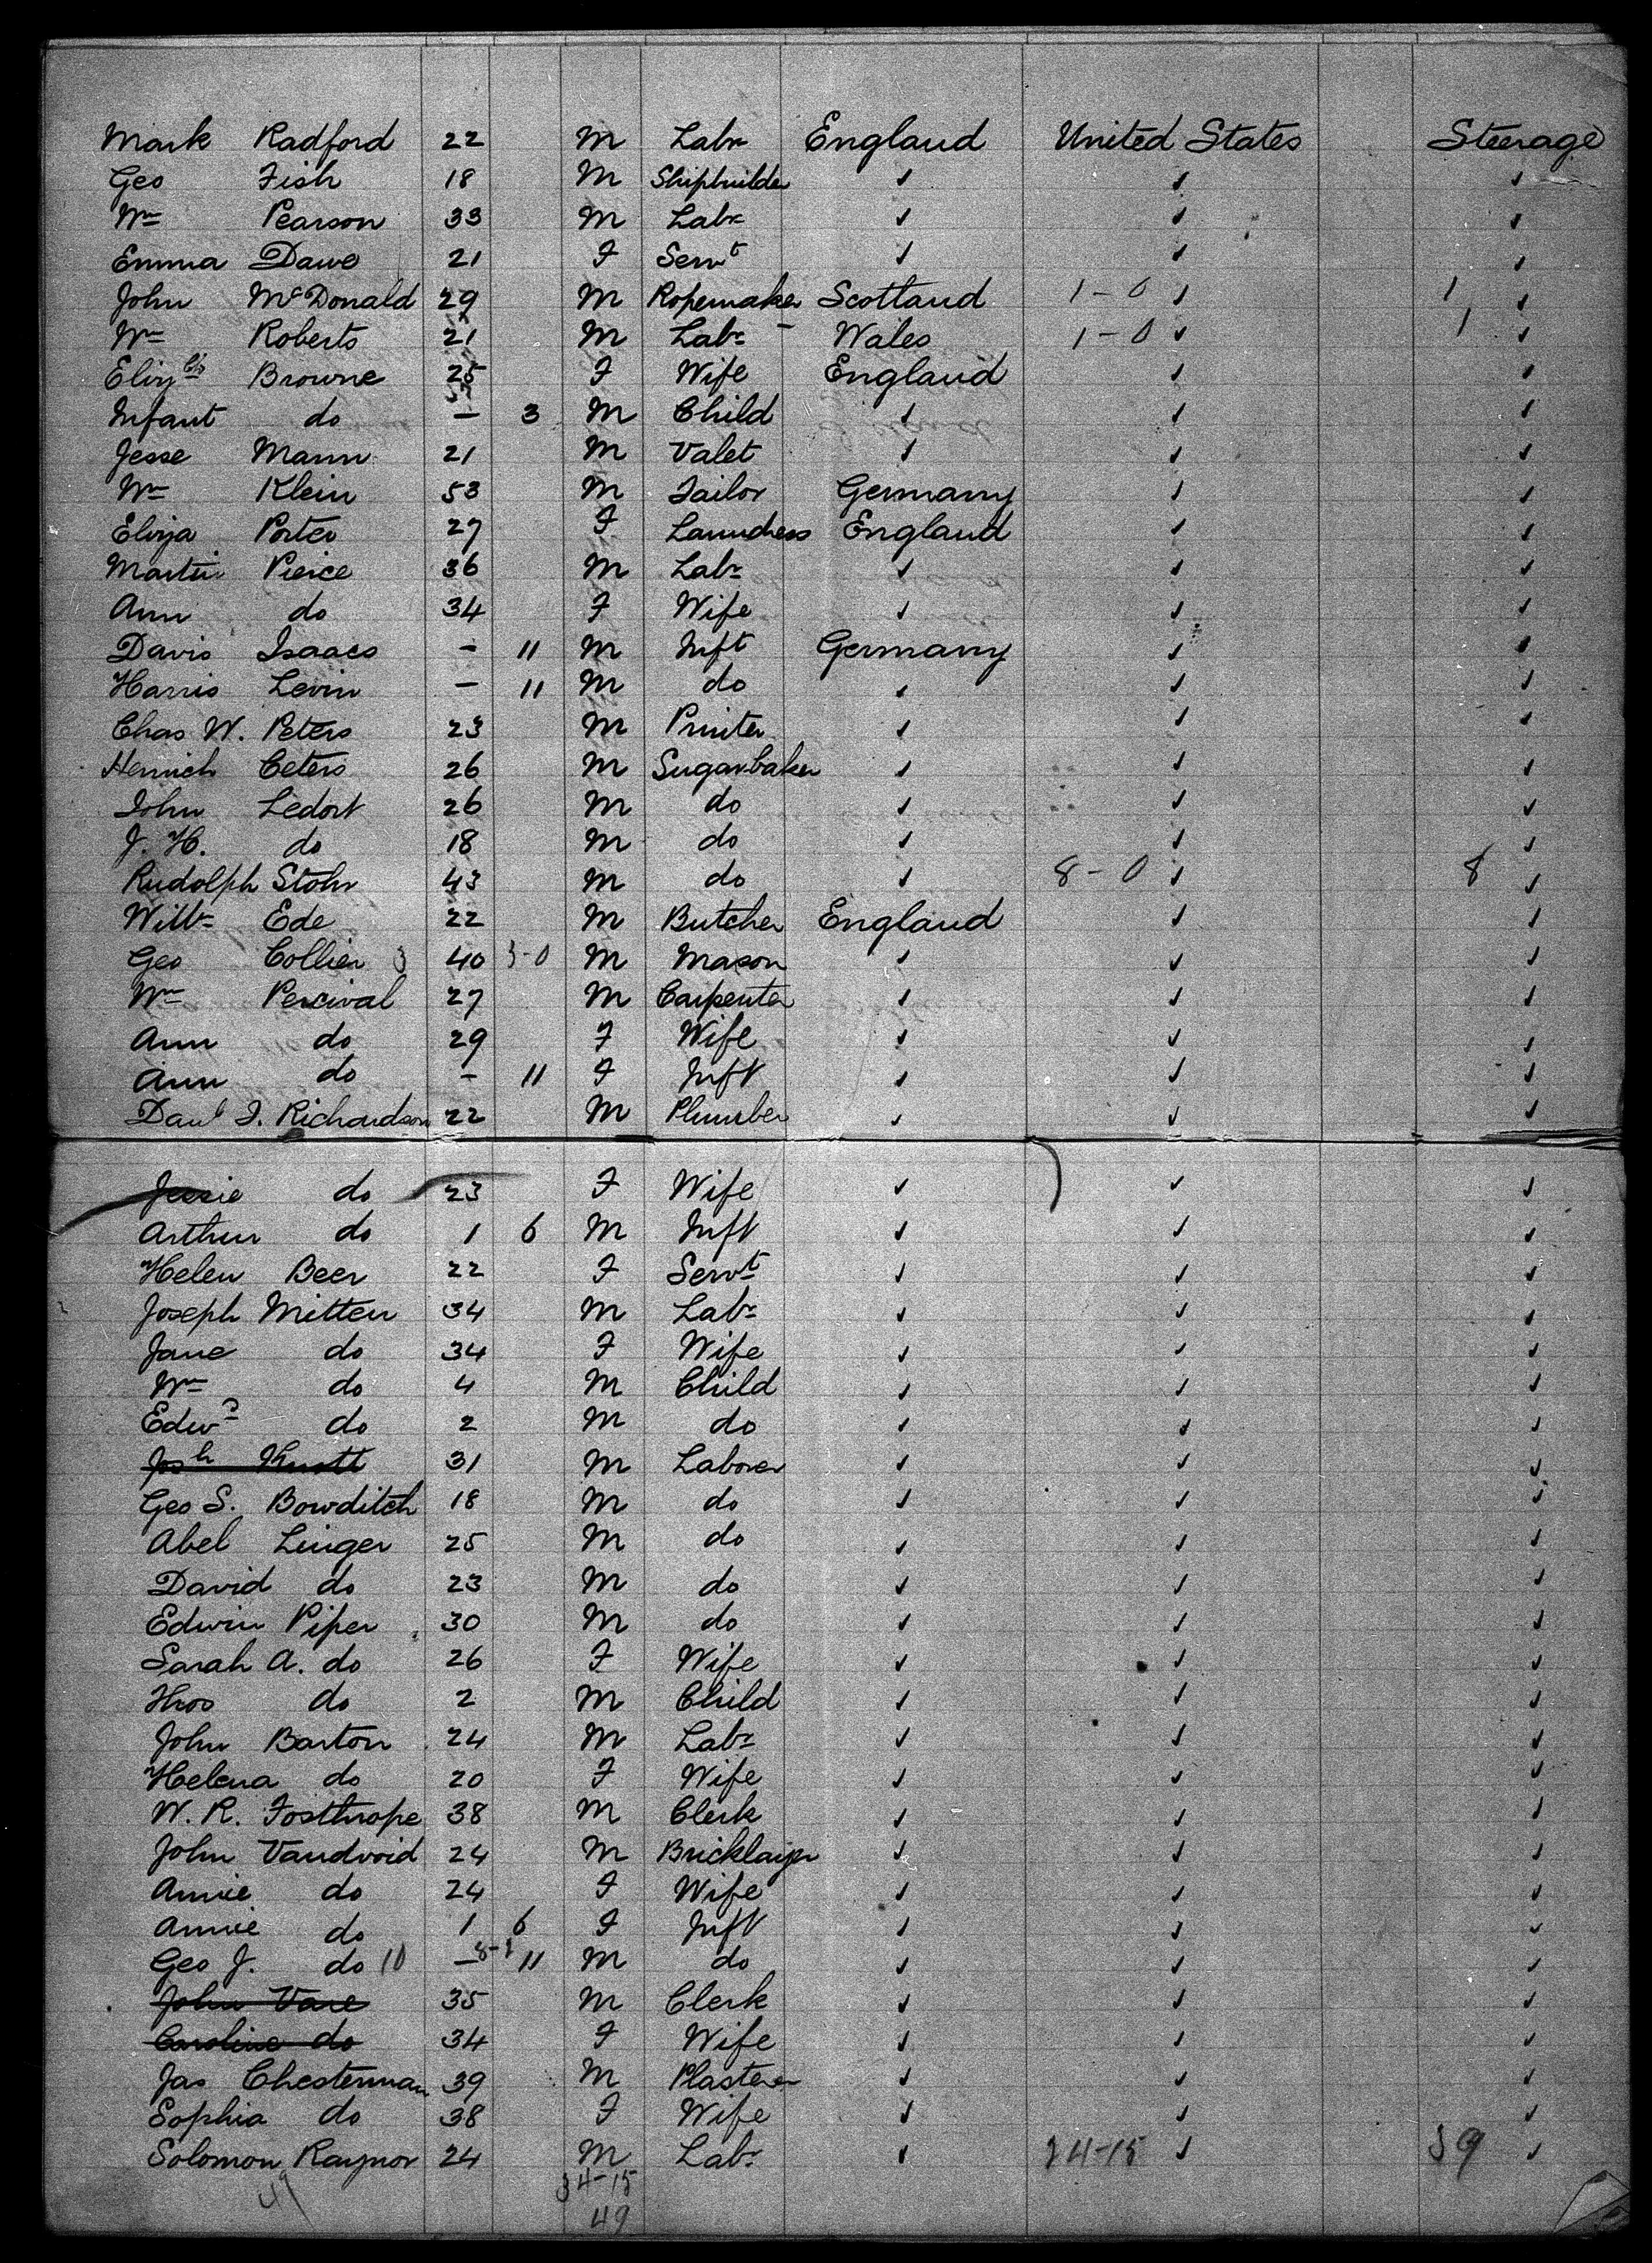 Mark Radford 22 M Labr England United States Steerage
Geo Fish 18 M Shipbuilder ✓ ✓ ✓
Wm Pearson 33 M Labr ✓ ✓ ✓
Emma Dawe 21 F Servt ✓ ✓ ✓
John McDonald 29 M Ropemaker Scotland 1-0 ✓ 1 ✓
Wm Roberts 21 M Labr Wales 1-0 ✓ 1 ✓
Elizbth Browne 25 F Wife England ✓ ✓
Infant do - 3 M Child ✓ ✓ ✓
Jesse Mann 21 M Valet ✓ ✓ ✓
Wm Klein 53 M Tailor Germany ✓ ✓
Eliza Porter 27 F Laundress England ✓ ✓
Martin Pierce 36 M Labr ✓ ✓ ✓
Ann do 34 F Wife ✓ ✓ ✓
Davis Isaacs - 11 M Inft Germany ✓ ✓
Harris Levin - 11 M do ✓ ✓ ✓
Chas W. Peters 23 M Printer ✓ ✓ ✓
Henrich Ceters 26 M Sugarbaker ✓ ✓ ✓
John Ledort 26 M do ✓ ✓ ✓
J. H. do 18 M do ✓ ✓ ✓
Rudolph Stohr 43 M do ✓ 8-0 ✓ 8 ✓
Willm Ede 22 M Butcher England ✓ ✓
Geo Collier 3 40 3-0 M Mason ✓ ✓ ✓
Wm Percival 27 M Carpenter ✓ ✓ ✓
Ann do 29 F Wife ✓ ✓ ✓
Ann do - 11 F Inft ✓ ✓ ✓
Danl J. Richardson 22 M Plumber ✓ ✓ ✓
Jessie do 23 F Wife ✓ ✓ ✓
Arthur do 1 6 M Inft ✓ ✓ ✓
Helen Beer 22 F Servt ✓ ✓ ✓
Joseph Mitten 34 M Labr ✓ ✓ ✓
Jane do 34 F Wife ✓ ✓ ✓
Wm do 4 M Child ✓ ✓ ✓
Edwd do 2 M do ✓ ✓ ✓
Josh Knott 31 M Laborer ✓ ✓ ✓
Geo S. Bowditch 18 M do ✓ ✓ ✓
Abel Linger 25 M do ✓ ✓ ✓
David do 23 M do ✓ ✓ ✓
Edwin Piper 30 M do ✓ ✓ ✓
Sarah A. do 26 F Wife ✓ ✓ ✓
Thos do 2 M Child ✓ ✓ ✓
John Barton 24 M Labr ✓ ✓ ✓
Helena do 20 F Wife ✓ ✓ ✓
W. R. Fosthrope 38 M Clerk ✓ ✓ ✓
John Vandvoid 24 M Bricklayer ✓ ✓ ✓
Annie do 24 F Wife ✓ ✓ ✓
Annie do 1 6 F Inft ✓ ✓ ✓
Geo J. do 10 - 11 M do ✓ ✓ ✓
John Vare 35 M Clerk ✓ ✓ ✓
Caroline do 34 F Wife ✓ ✓ ✓
Jas Chesterman 39 M Plasterer ✓ ✓ ✓
Sophia do 38 F Wife ✓ ✓ ✓
Solomon Raynor 24 M Labr ✓ 24-15 ✓ 39 ✓
49 34-15
49